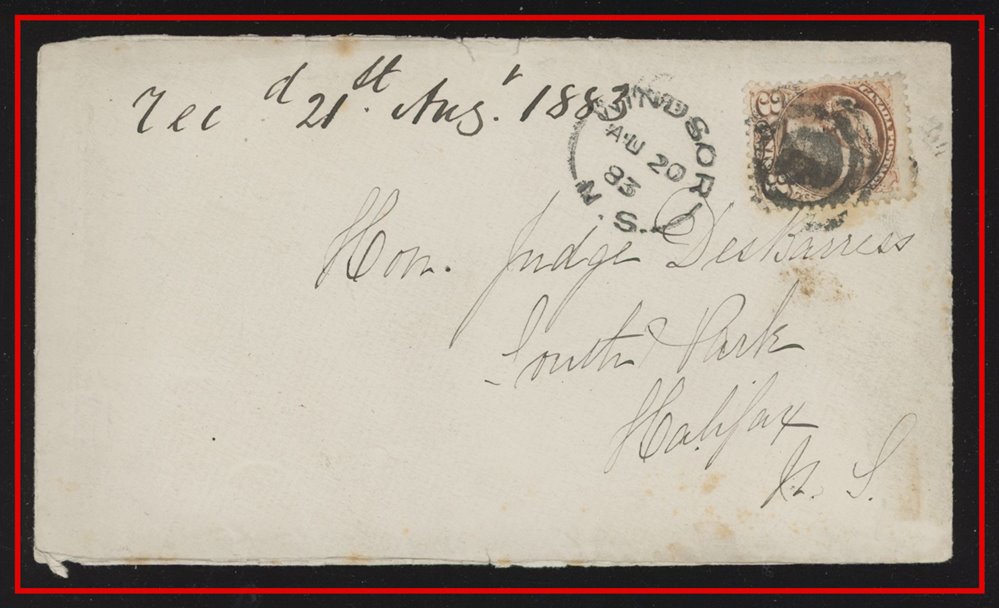 rec'd 21st Aug't 1883
WINDSOR
AU 20
83
N.S.
3 CANADA POSTAGE 3
Hon. Judge DesBarress
South Park
Halifax
N. S.